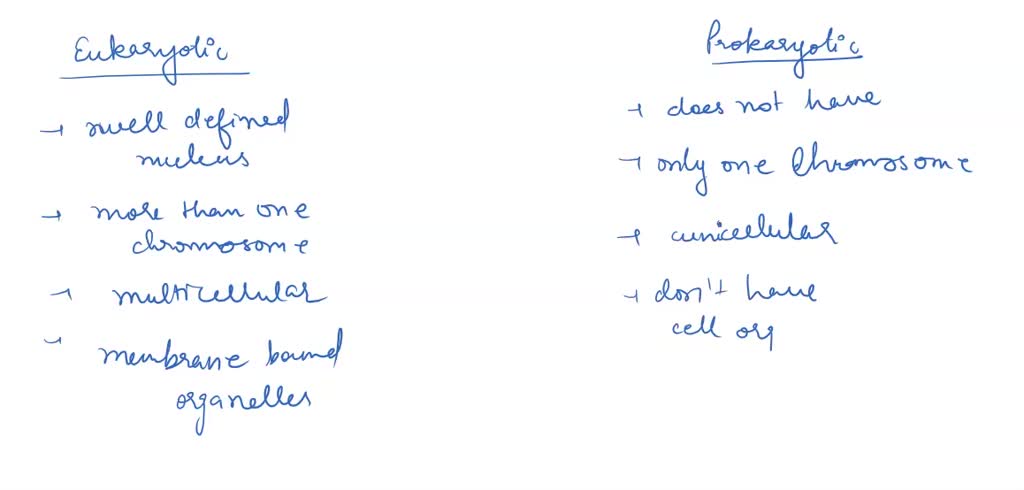 Eukaryotic
→ well defined
nucleus
→ more than one
chromosome
→ multicellular
→ membrane bound
organelles
Prokaryotic
→ does not have
→ only one Chromosome
→ unicellular
→ don't have
cell org